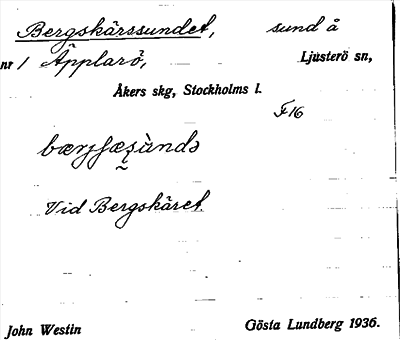 Bergskärssundet, sund å
nr 1 Äpplarö, Ljusterö sn,
Åkers skg, Stockholms l.
F16
Vid Bergskäret.
John Westin Gösta Lundberg 1936.